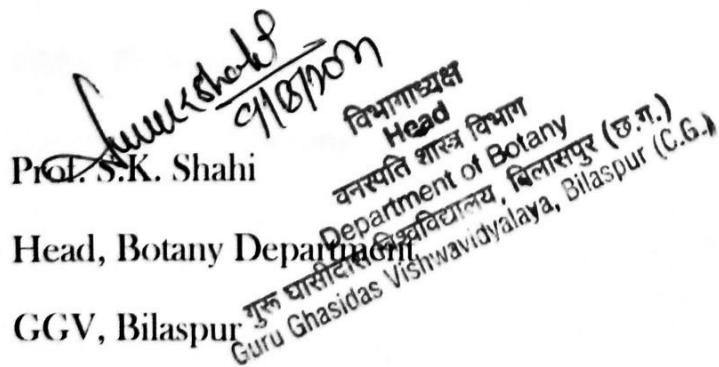 Prof. S.K. Shahi
Head, Botany Department
GGV, Bilaspur
विभागाध्यक्ष
Head
वनस्पति शास्त्र विभाग
Department of Botany
गुरू घासीदास विश्वविद्यालय, बिलासपुर (छ.ग.)
Guru Ghasidas Vishwavidyalaya, Bilaspur (C.G.)